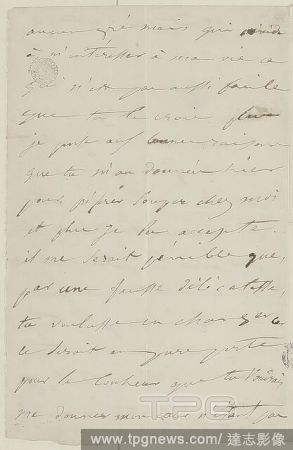 aucun gré mais qui
à m'intéresser à ma vie ce
qui n'est pas aussi facile
que tu le crois
je
que tu m'as données hier
pour préférer souper chez moi
et plus je les accepte.
il me serait pénible que,
par une fausse délicatesse,
tu voulusses en changer
ce serait
pour le bonheur que tu voudrais
me donner mon
TPG
IMAGES
www.tpgnews.com / 達志影像